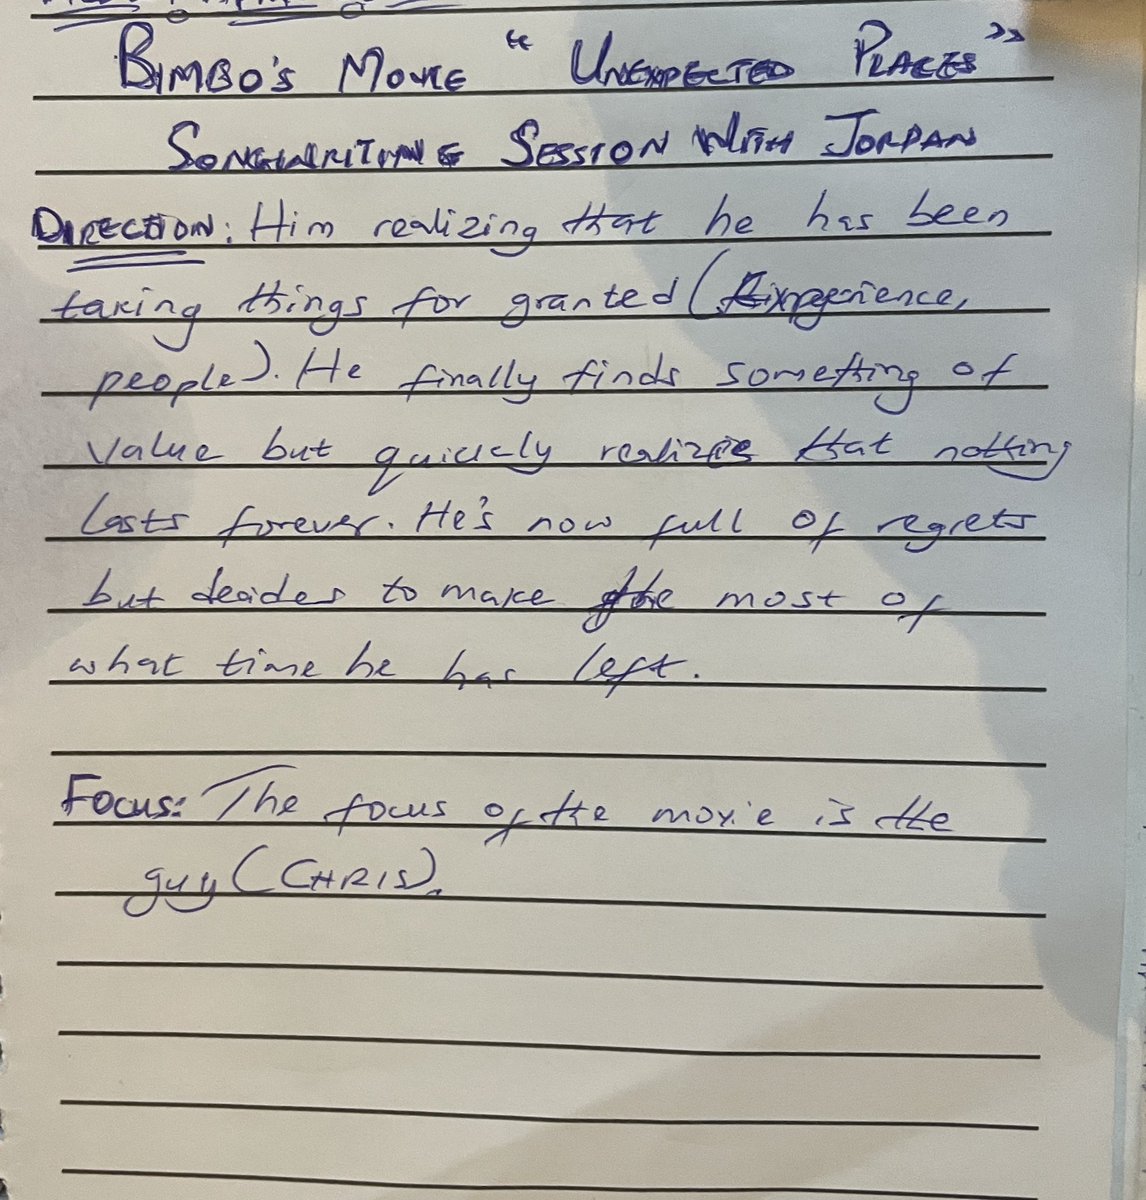 BIMBO'S MOVIE "UNEXPECTED PLACES"
SONGWRITING SESSION WITH JORDAN
DIRECTION: Him realizing that he has been
taking things for granted (Experience,
people). He finally finds something of
value but quickly realizes that nothing
lasts forever. He's now full of regrets
but decides to make the most of
what time he has left.
Focus: The focus of the movie is the
guy (CHRIS).